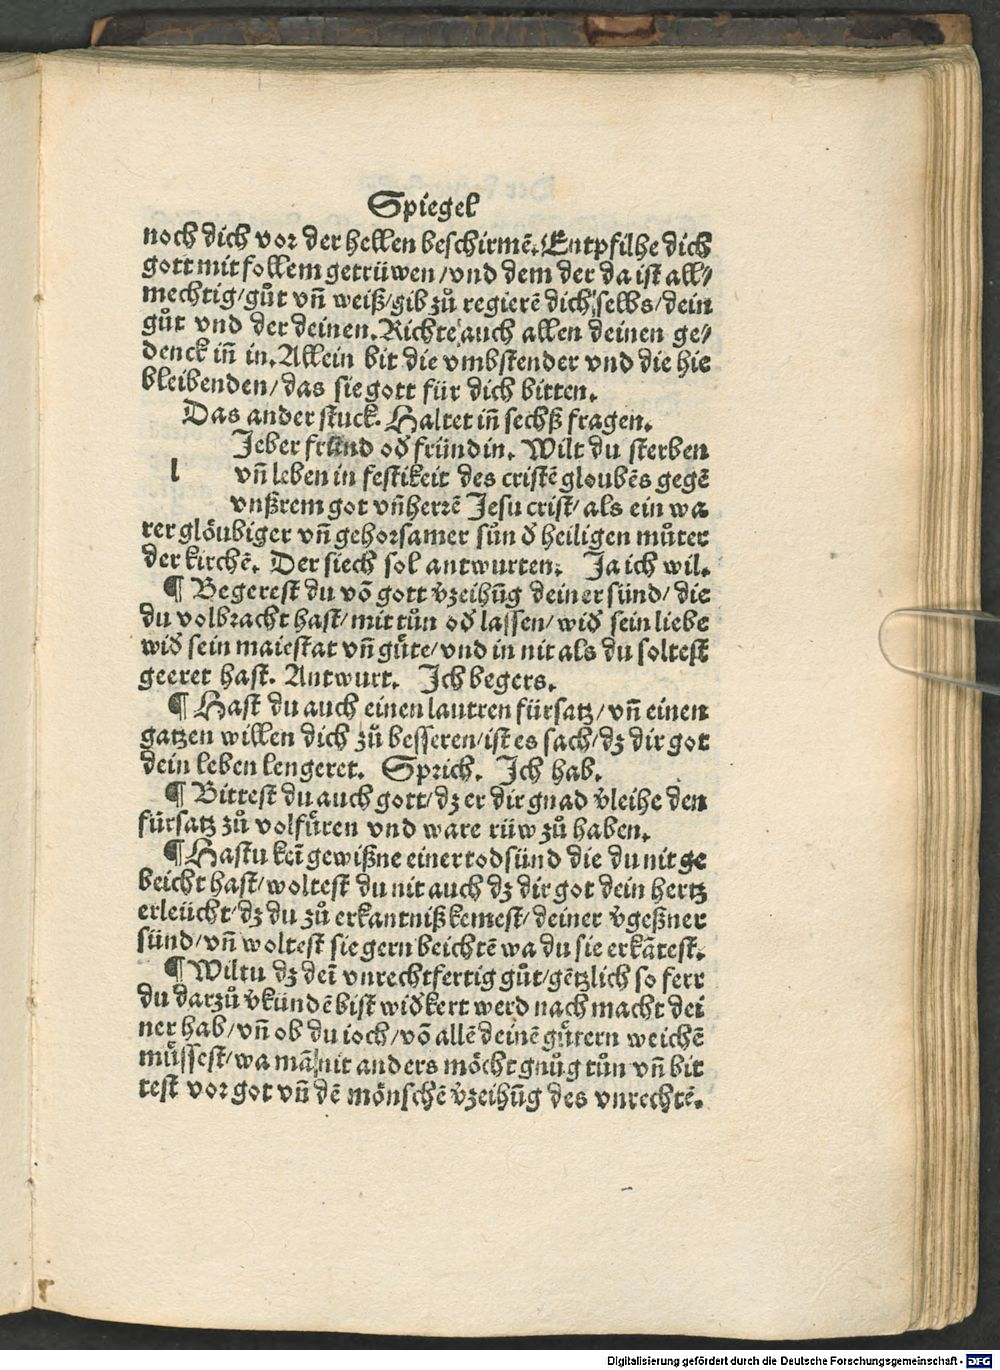 Spiegel
noch dich vor der hellen beschirmē. Entpfilhe dich
gott mit follem getrüwen / vnd dem der da ist all⸗
mechtig / gůt vñ weiß / gib zů regierē dich selbs / dein
gůt vnd der deinen. Richte auch allen deinen ge⸗
denck iñ in. Allein bit die vmbstender vnd die hie
bleibenden / das sie gott für dich bitten.
Das ander stuck. Haltet iñ sechß fragen.
l
Jeber fründ od̕ fründin. Wilt du sterben
vñ leben in festikeit des cristē gloubēs gegē
vnßrem got vñ herrē Jesu crist / als ein wa
rer glöubiger vñ gehorsamer sůn d̕ heiligen můter
der kirchē. Der siech sol antwurten. Ja ich wil.
¶ Begerest du vō gott v̕zeihūg deiner sünd / die
du volbracht hast / mit tůn od̕ lassen / wid̕ sein liebe
wid̕ sein maiestat vñ gůte / vnd in nit als du soltest
geeret hast. Antwurt. Jch begers.
¶ Hast du auch einen lautren fürsatz / vñ einen
gatzen willen dich zů besseren / ist es sach / dz dir got
dein leben lengeret. Sprich. Jch hab.
¶ Bittest du auch gott / dz er dir gnad v̕leihe den
fürsatz zů volfüren vnd ware rüw zů haben.
¶ Hastu keī gewißne einer todsünd die du nit ge
beicht hast / woltest du nit auch dz dir got dein hertz
erleücht / dz du zů erkantniß kemest / deiner v̕geßner
sünd / vñ woltest sie gern beichtē wa du sie erkātest.
¶ Wiltu dz deī vnrechtfertig gůt / gētzlich so ferr
du darzů v̕kündē bist wid̕kert werd nach macht dei
ner hab / vñ ob du ioch / vō allē deinē gütern weichē
müssest / wa mā nit anders möcht gnůg tůn vñ bit
test vor got vñ dē mönschē v̕zeihūg des vnrechtē.
Digitalisierung gefördert durch die Deutsche Forschungsgemeinschaft - DFG